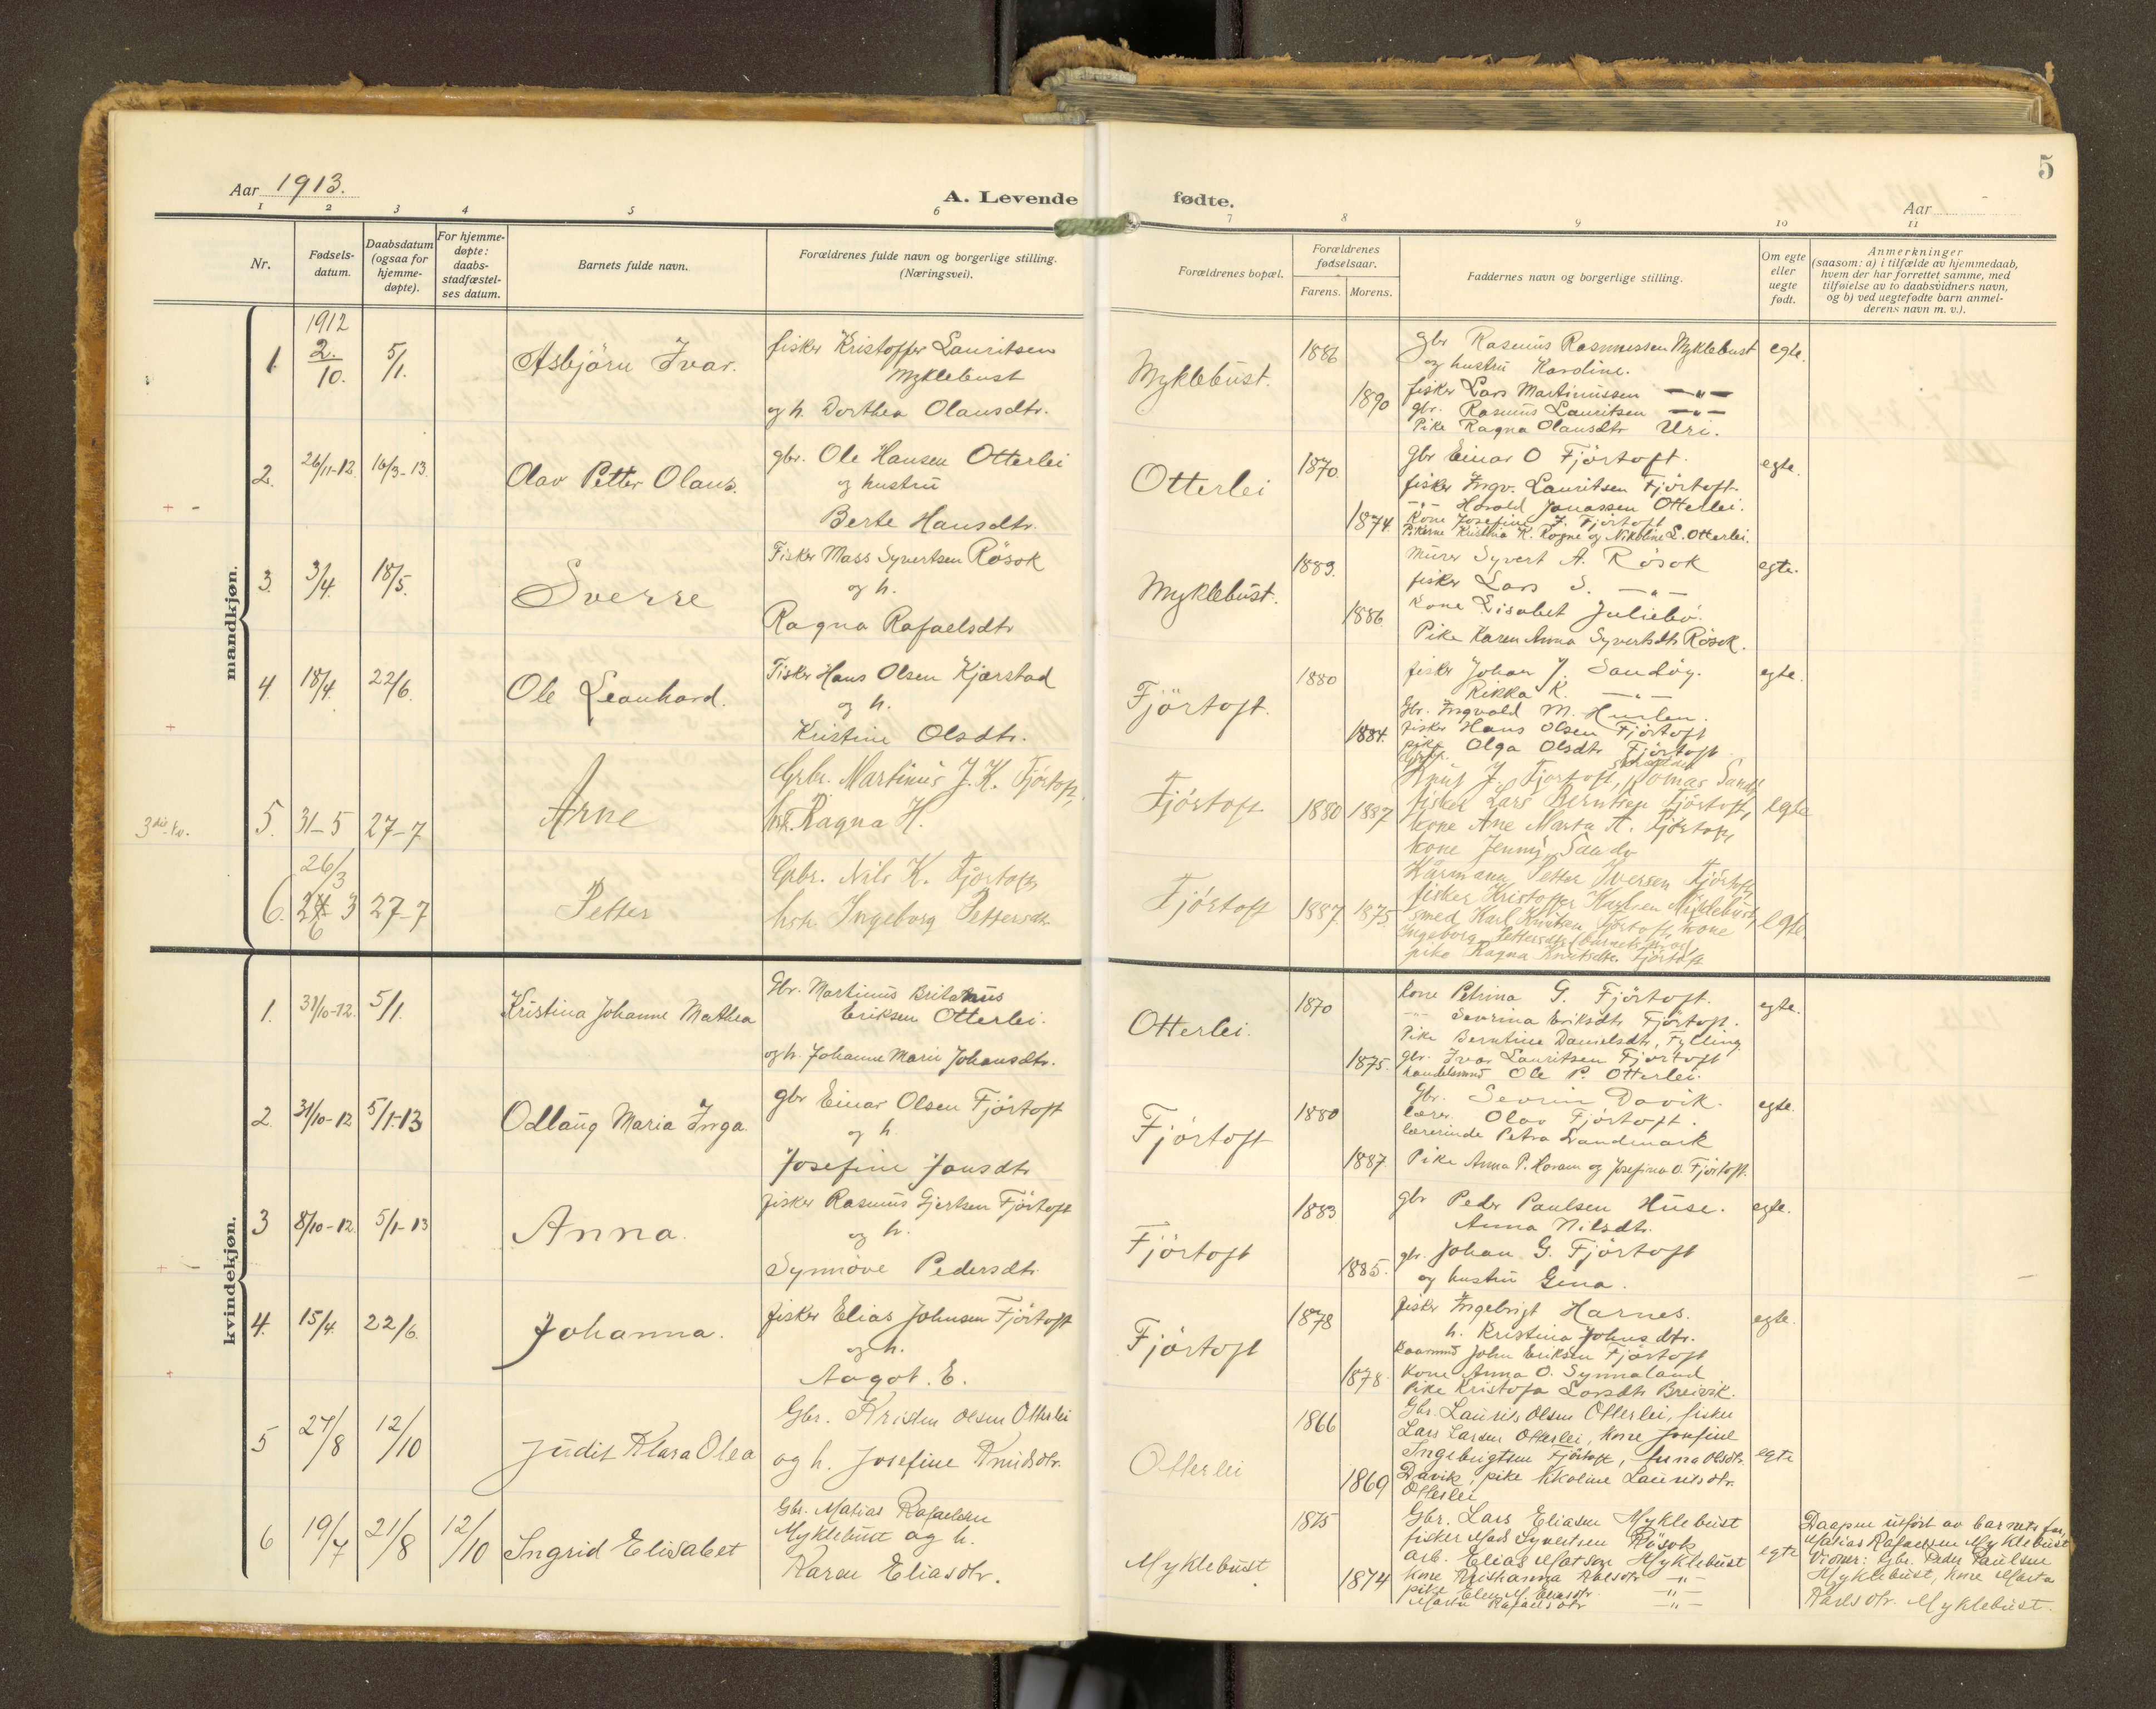 5
Aar 1913.
A. Levende fødte.
Aar
1 2 3 4 5 6 7 8 9 10 11
Nr.
Fødsels-
datum.
Daabsdatum
(ogsaa for
hjemme-
døpte).
For hjemme-
døpte:
daabs-
stadfæstel-
ses datum.
Barnets fulde navn.
Forældrenes fulde navn og borgerlige stilling.
(Næringsvei).
Forældrenes bopæl.
Forældrenes
fødselsaar.
Farens. Morens.
Faddernes navn og borgerlige stilling.
Om egte
eller
uegte
født.
Anmerkninger
(saasom: a) i tilfælde av hjemmedaab,
hvem der har forrettet samme, med
tilføielse av to daabsvidners navn,
og b) ved uegtefødte barn anmel-
derens navn m. v.).
mandkjøn.
1912
1. 2/10. 5/1. Asbjörn Ivar.
fisker Kristoffer Lauritsen
Myklebust
og h. Dorthea Olausdtr.
Myklebust. 1886 1890
gbr Rasmus Rasmussen Myklebust
og hustru Karoline.
fisker Lars Martinussen —"—
gbr. Rasmus Lauritsen —"—
Pike Ragna Olausdtr Uri.
egte.
2. 26/11-12. 16/3-13. Olav Petter Olaus.
gbr. Ole Hansen Otterlei
og hustru
Berte Hansdtr.
Otterlei 1870 1874
Gbr Einar O Fjörtoft.
fisker Ingv. Lauritsen Fjörtoft
-"- Harald Jonassen Otterlei.
Kone Josefine J. Fjörtoft
Pikerne Kristina K. Rogne og Nikoline L. Otterlei.
egte.
3. 3/4. 18/5. Sverre
Fisker Mass Syvertsen Rösok
og h.
Ragna Rafaelsdtr
Myklebust. 1883. 1886
Murer Syvert A. Rösok
fisker Lars S. —"—
Kone Lisabet Juliebö.
Pike Karen Anna Syvertsdtr Rösok.
egte.
4. 18/4. 22/6. Ole Leonhard.
Fisker Hans Olsen Kjærstad
og h.
Kristine Olsdtr.
Fjörtoft. 1880 1884.
fisker Johan J. Sandöy.
Rikka K. —"—
Gbr. Ingvald M. Huslen.
fisker Hans Olsen Fjörtoft
pike Olga Olsdtr Fjörtoft
egte.
5. 31-5 27-7 Arne
Grbr. Martinus J. K. Fjörtoft,
hstr. Ragna H.
Fjörtoft 1880 1887
Knut J. Fjortoft, Tomas
fisker Lars Berntsen Fjörtoft,
kone Ane Marta A. Fjörtoft,
kone Jenny
egte
26/3
6. 3 27-7 Petter
Grbr. Nils K. Fjortoft,
hstr. Ingeborg Pettersdtr.
Fjörtoft 1887 1875
Kårmann Petter Iversen Fjörtoft,
fisker Kristoffer Karlsen Myklebust,
smed Karl Knutsen Fjörtoft, kone
Ingeborg Pettersdtr (barnets mor)
pike Ragna Knutsdtr. Fjörtoft
egte.
kvindekjøn.
1. 31/10-12. 5/1. Kristina Johanne Mathea
Gbr. Martinus Britanus
Eriksen Otterlei.
og h. Johanne Marie Johansdtr.
Otterlei 1870 1875.
Kone Petrina G. Fjörtoft.
-"- Severina Eriksdtr Fjörtoft.
Pike Berntine Danielsdtr, Fylling
gbr. Ivar Lauritsen Fjörtoft
handelsmd Ole P. Otterlei.
egte.
2. 31/10-12 5/1-13 Odlaug Maria Inga.
gbr Einar Olsen Fjörtoft
og h.
Josefine Jonsdtr
Fjörtoft 1880 1887
Gbr. Sevrin Davik.
lærer. Olav Fjörtoft.
lærerinde Petra Landmark
Pike Anna P. Haram og Josefina O. Fjörtoft.
egte.
3 8/10-12. 5/1-13 Anna.
fisker Rasmus Gjertsen Fjörtoft
og h.
Synnöve Pedersdtr
Fjörtoft 1883 1885.
gbr Peder Paulsen Huse.
Anna Nilsdtr.
gbr. Johan G. Fjörtoft
og hustru Gina.
egte.
4. 15/4. 22/6. Johanna.
fisker Elias Johnsen Fjörtoft
og h.
Aagot. E.
Fjörtoft 1878 1878.
fisker Ingebrigt Harnes.
h. Kristina Johnsdtr.
Kaarmd John Eriksen Fjörtoft
Kone Anna O. Synnaland
Pike Kristofa Larsdtr Breivik.
egte.
5 27/8 12/10 Judit Klara Olea
Gbr. Kristen Olsen Otterlei
og h. Josefine Knutsdtr.
Otterlei 1866 1869
Gbr. Laurits Olsen Otterlei, fisker
Lars Larsen Otterlei, kone Josefine
Ingebrigtsen Fjörtoft, Anna Olsdtr.
Davik, pike Nikoline Lauritsdtr.
Otterlei
egte
6 19/7 21/8 12/10 Ingrid Elisabet
Gbr. Matias Rafaelsen
Myklebust og h.
Karen Eliasdtr.
Myklebust 1875 1874
Gbr. Lars Eliasen Myklebust
fisker Mads Syvertsen Rösok
arb. Elias Matsen Myklebust
kone Kristianna Abelsdtr —"—
pike Elen M. Eliasdtr —"—
Marta Rafaelsdtr —"—
egte
Daapen utfört av barnets far,
Matias Rafaelsen Myklebust
Vidner: Gbr. Peder Paulsen
Myklebust, kone Marta
Karlsdtr. Myklebust.